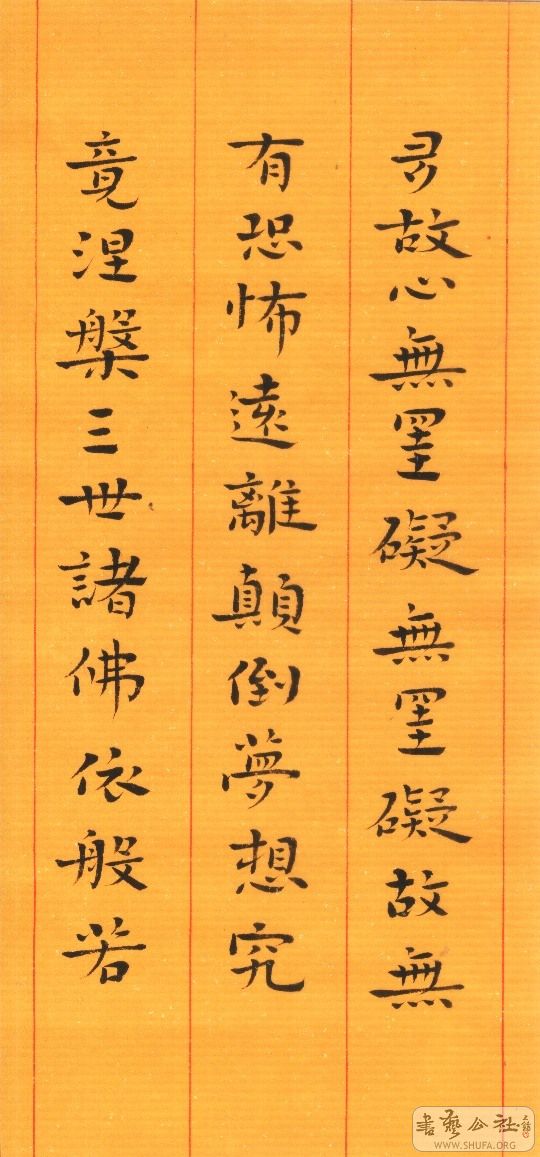 多故心無罣礙無罣礙故無
有恐怖遠離顛倒夢想究
竟涅槃三世諸佛依般若
書藝公社
WWW.SHUFA.ORG